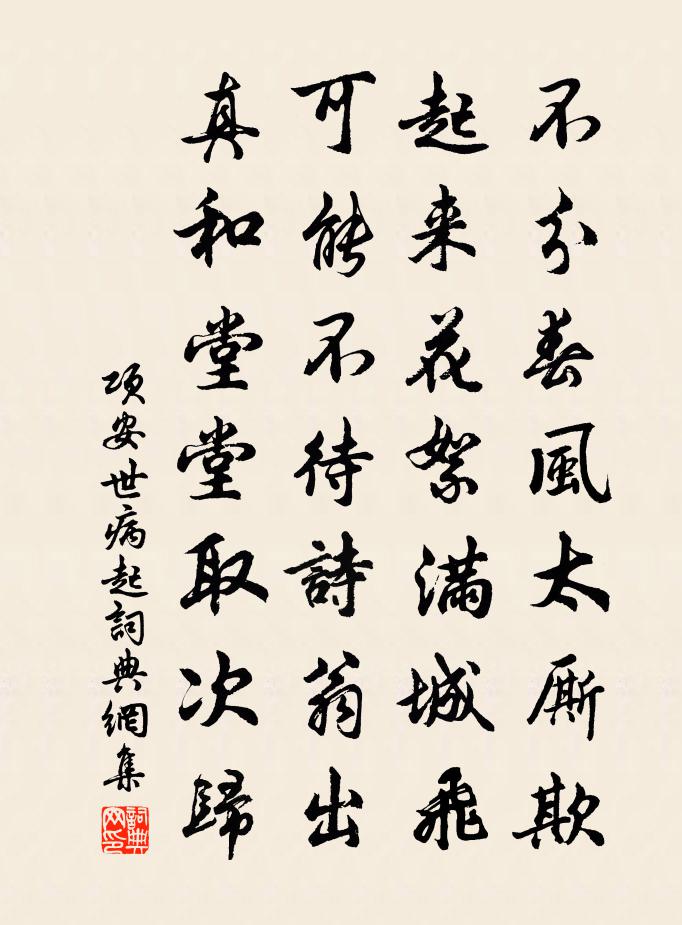 不分春風太厮欺
起来花絮滿城飛
可能不待詩翁出
真和堂堂取次歸
項安世病起詞典網集
詞典网印